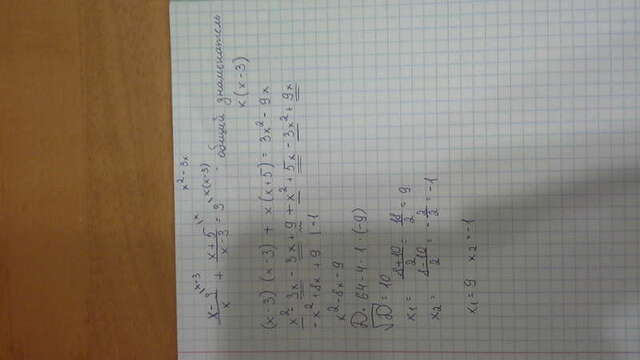 x² - 3x
x-3/x + x+5/x-3 = 3 - общий знаменатель
x(x-3)
(x-3)(x-3) + x(x+5) = 3x² - 9x
x² - 3x - 3x + 9 + x² + 5x - 3x² + 9x
-x² + 8x + 9 | -1
x² - 8x - 9
D = 64 - 4 · 1 · (-9)
√D = 10
x₁ = 8+10/2 = 18/2 = 9
x₂ = 8-10/2 = -2/2 = -1
x₁ = 9 x₂ = -1